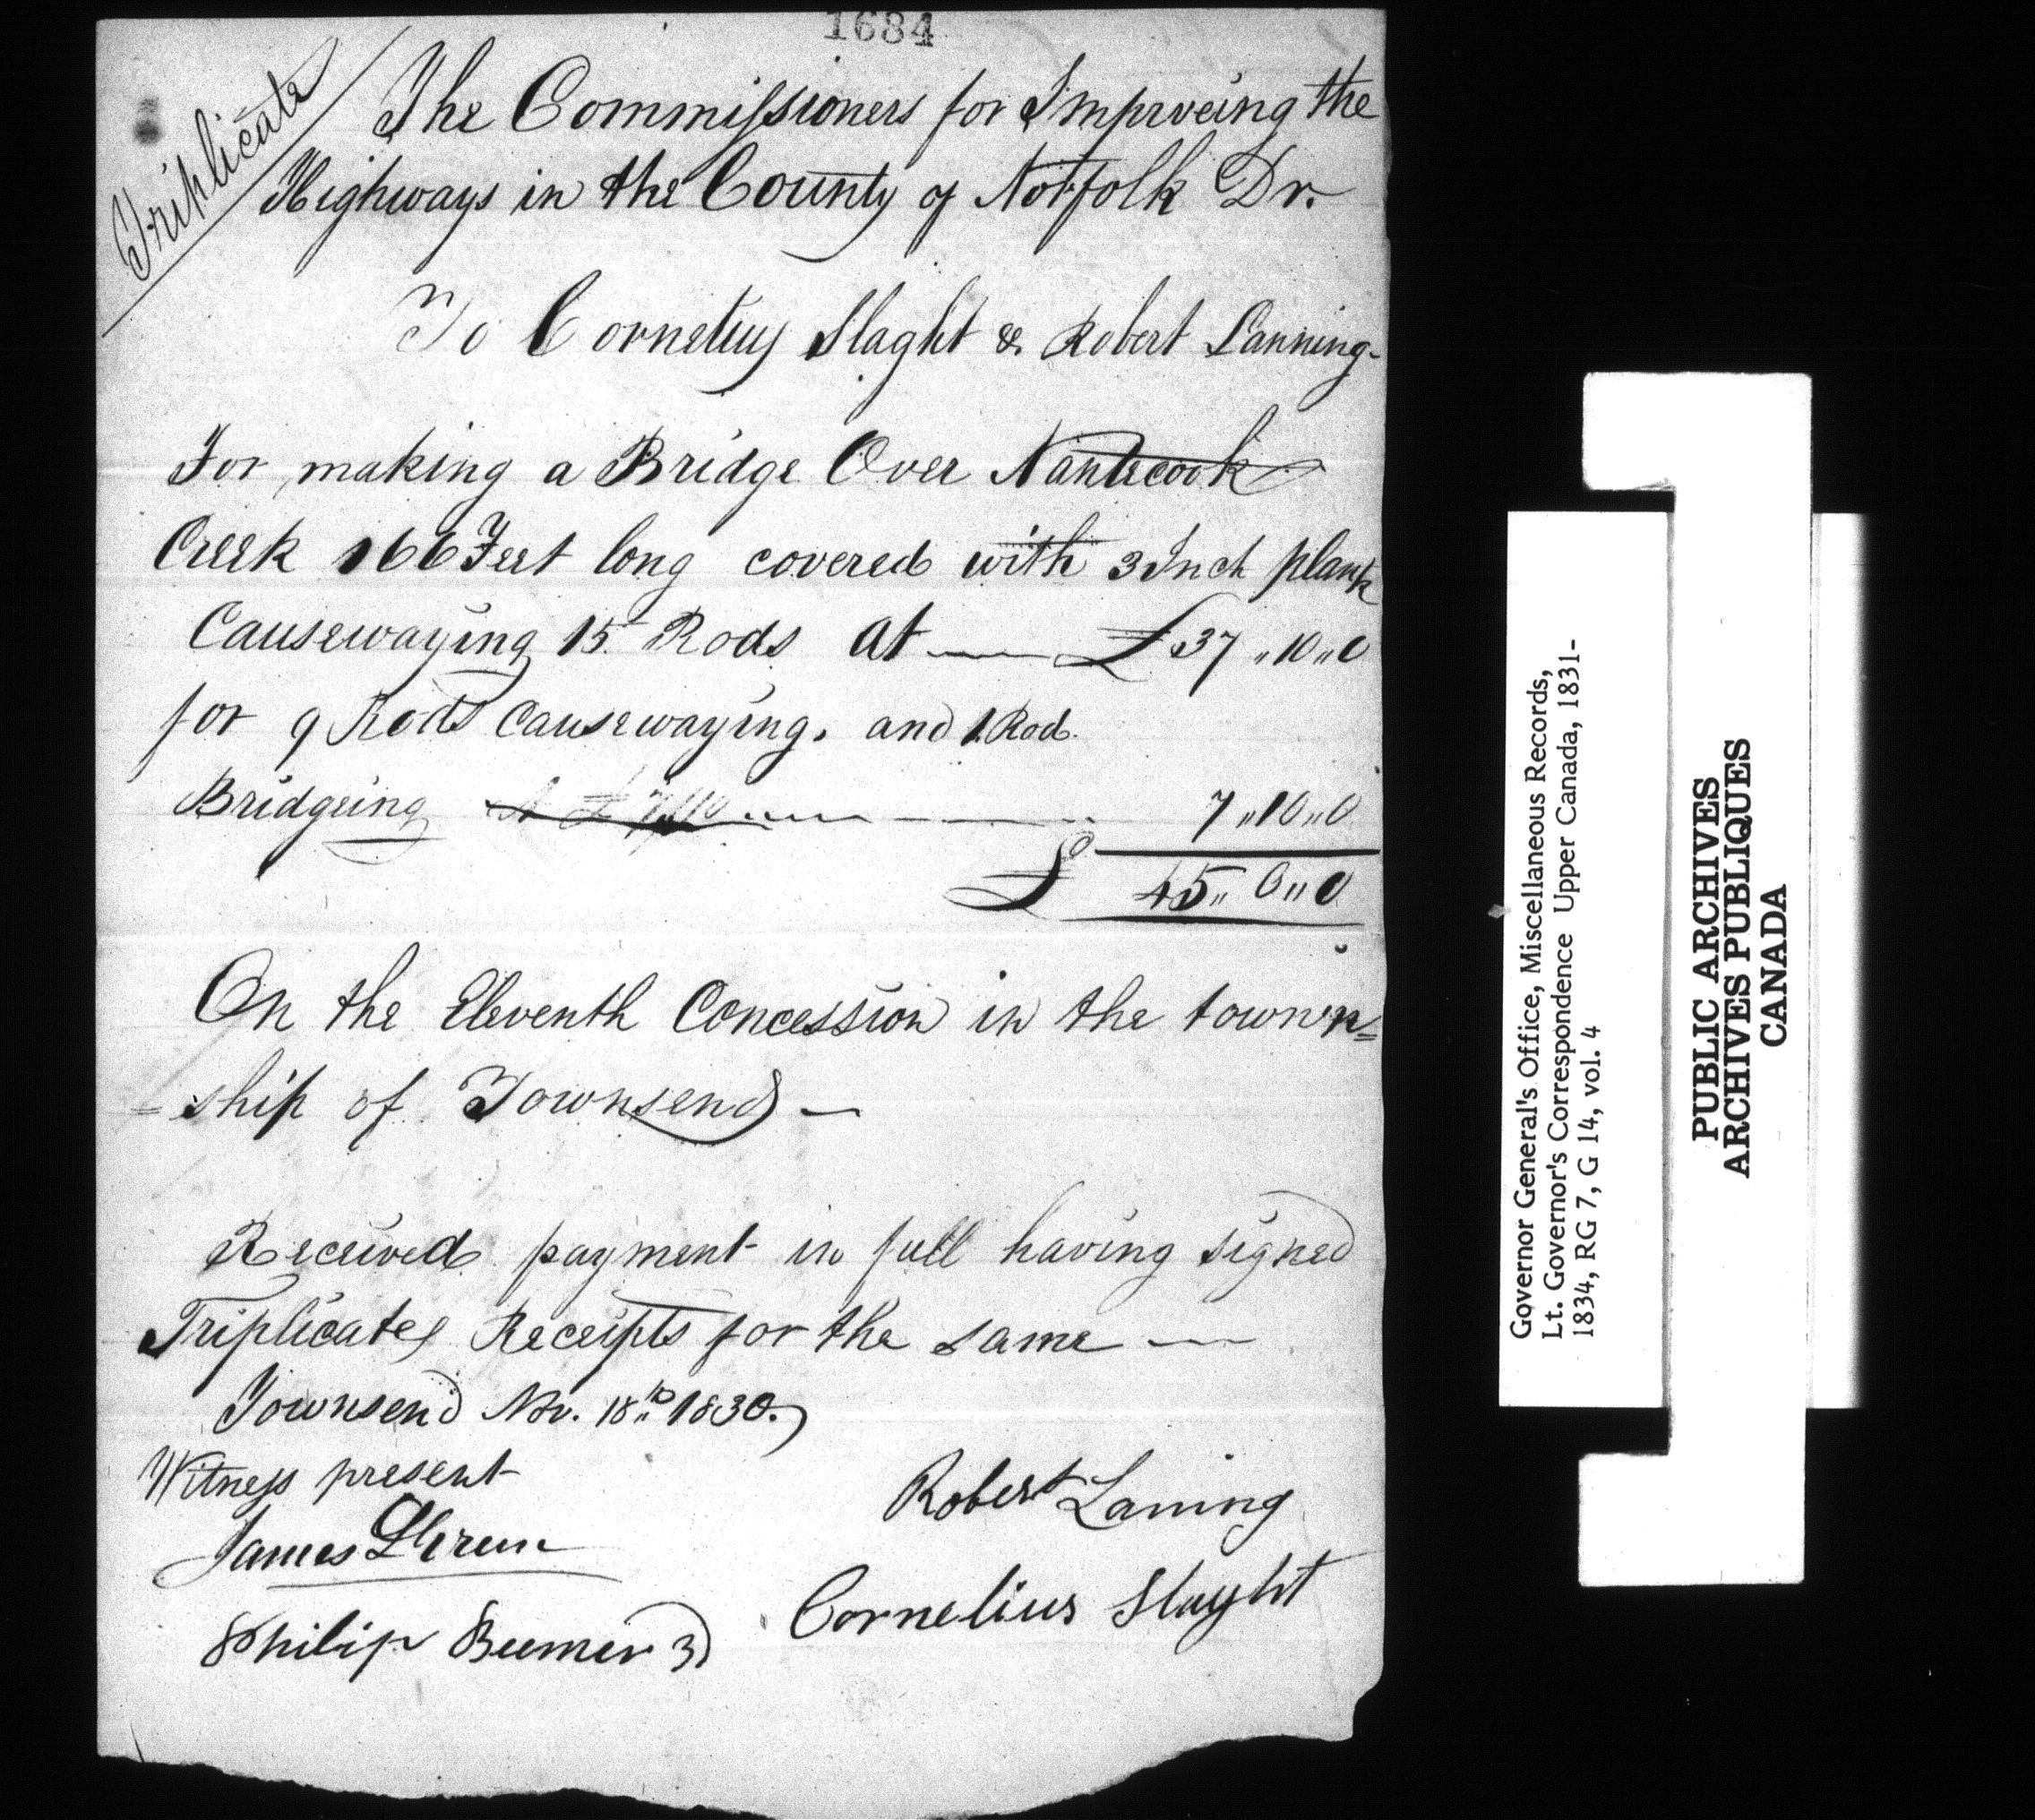 1684
Triplicate
The Commissioners for Improveing the
Highways in the County of Norfolk Dr.
To Cornelius Slaght & Robert Lanning-
For making a Bridge Over Nanticook
Creek 166 Feet long covered with 3 Inch plank
Causewaying 15 Rods at — £ 37 " 10 " 0
for 9 Rods Causewaying. and 1 Rod.
Bridgeing 7 " 10 " 0
£ 45 " 0 " 0
On the Eleventh Concession in the town=
=ship of Townsend —
Received payment in full having signed
Triplicates Receipts for the same —
Townsend Nov. 18th 1830.
Witness present
James
Robert Laning
Philip Beemer 3d
Cornelius Slaght
Governor General's Office, Miscellaneous Records,
Lt. Governor's Correspondence Upper Canada, 1831-
1834, RG 7, G 14, vol. 4
PUBLIC ARCHIVES
ARCHIVES PUBLIQUES
CANADA